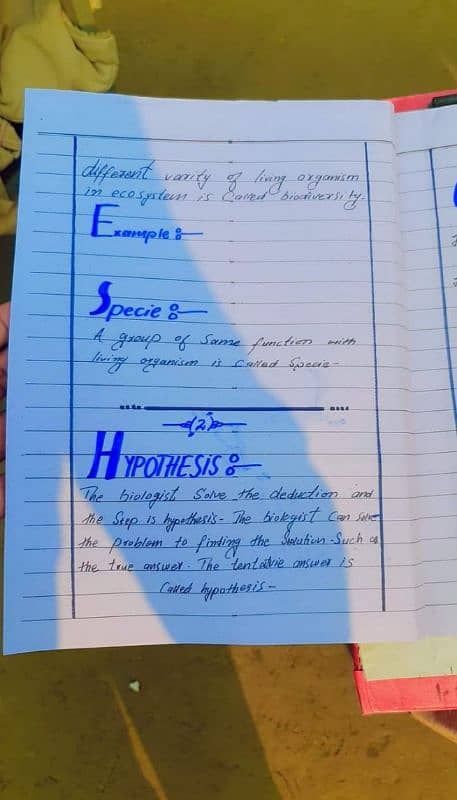 different varity of living organism
in ecosystem is Called biodiversity.
Example :-
Specie :-
A group of Same function with
living organism is Called Specie-
(2)
HYPOTHESIS :-
The biologist Solve the deduction and
the Step is hypothesis- The biologist Can Solve
the problem to finding the Solution-Such as
the true answer. The tentative answer is
Called hypothesis-